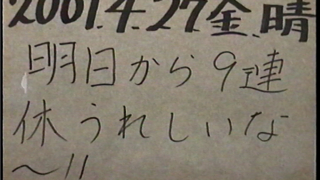 2001.4.27金晴
明日から9連
休うれしいな
～!!